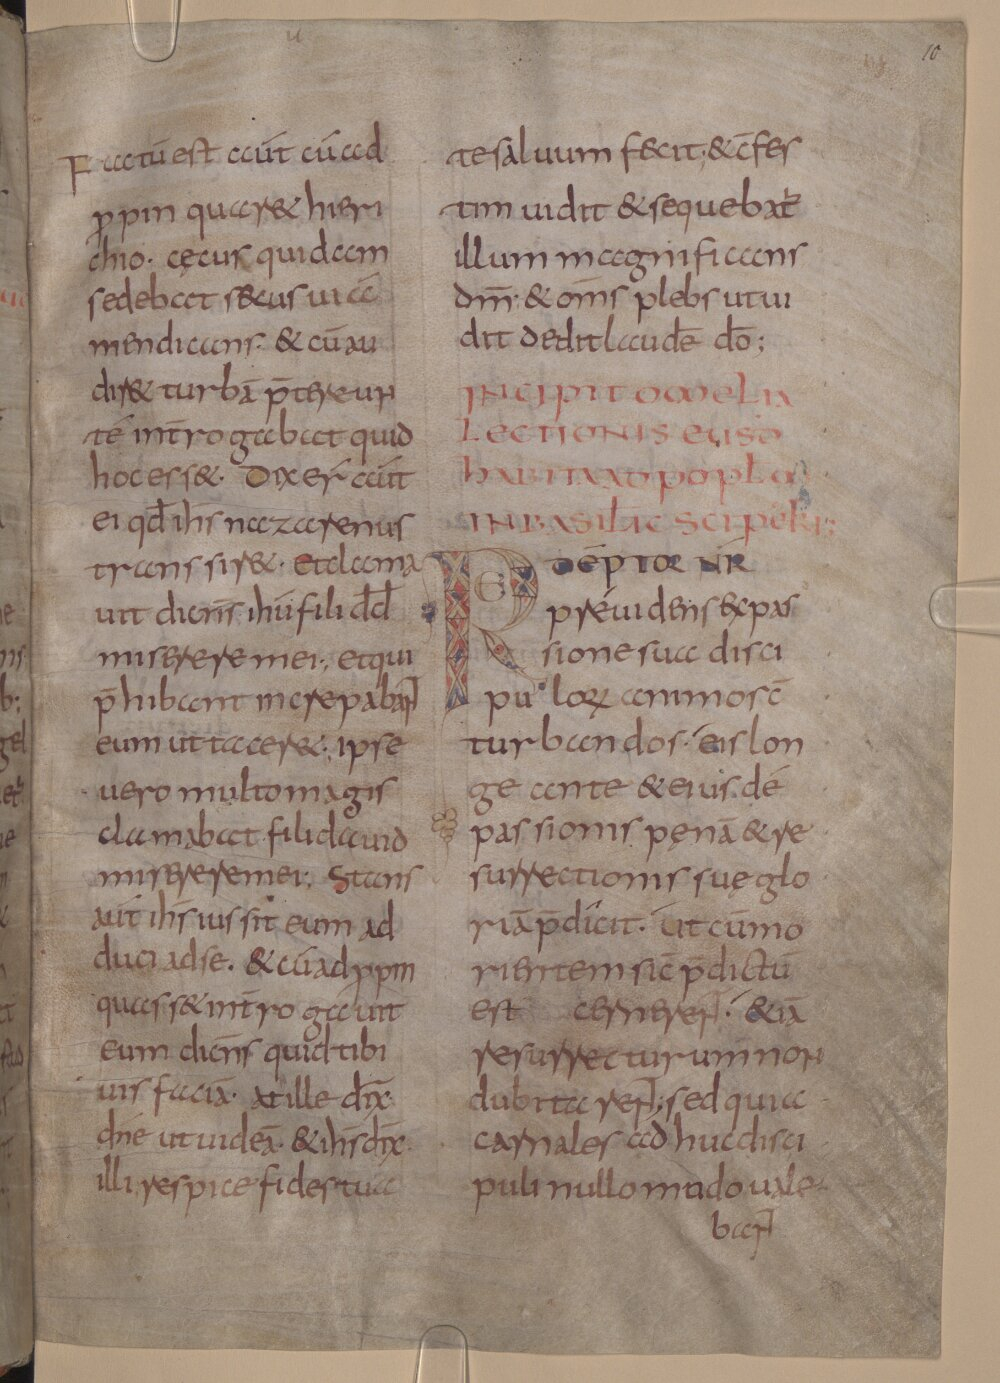 10
Factū est aut̄ cū ad
ꝓpinquaret hieri
chio. cęcus quidam
sedebat secus uiā
mendicans. & cū au
dir& turbā p̄thereun
tē int̄rogabat quid
hoc ess&. Dixer̄ aut̄
ei qđ ih̄s nazarenus
transsir&. Et clama
uit dicen̄s ihū fili dđ
miserere mei., et qui
p̄hibant increpabant
eum ut tacer&., ipse
uero multo magis
clamabat fili dauid
miserere mei; Stans
aut̄ ih̄s iussit eum ad
duci ad se. & cū adꝓpin
quass& int̄rogauit
eum dicen̄s quid tibi
uis faciā. at ille dix̄
dn̄e ut uideā. & ih̄s dix̄
illi respice fides tua
te saluum fecit; & cōfes
tim uidit & sequebat᷑
illum magnificans
dm̄. & om̄s plebs ut ui
dit dedit laudē dō;
INCIPIT OMELIA
LECTIONIS EIUSD
HABITA AD POPL̄
IN BASILIC SC̄I PETRI;
REDEMPTOR NR̄
preuidens ex pas
sione sua disci
pulorꝝ animos c̄
turbandos. eis lon
ge ante & eius dē
passionis penā & re
surrectionis suę glo
riā p̄dicit. ut cū mo
rientem sic̄ p̄dictū
est cernerent. & iā
resurrecturum non
dubitarent; sed quia
carnales adhuc disci
puli nullo modo uale
bant